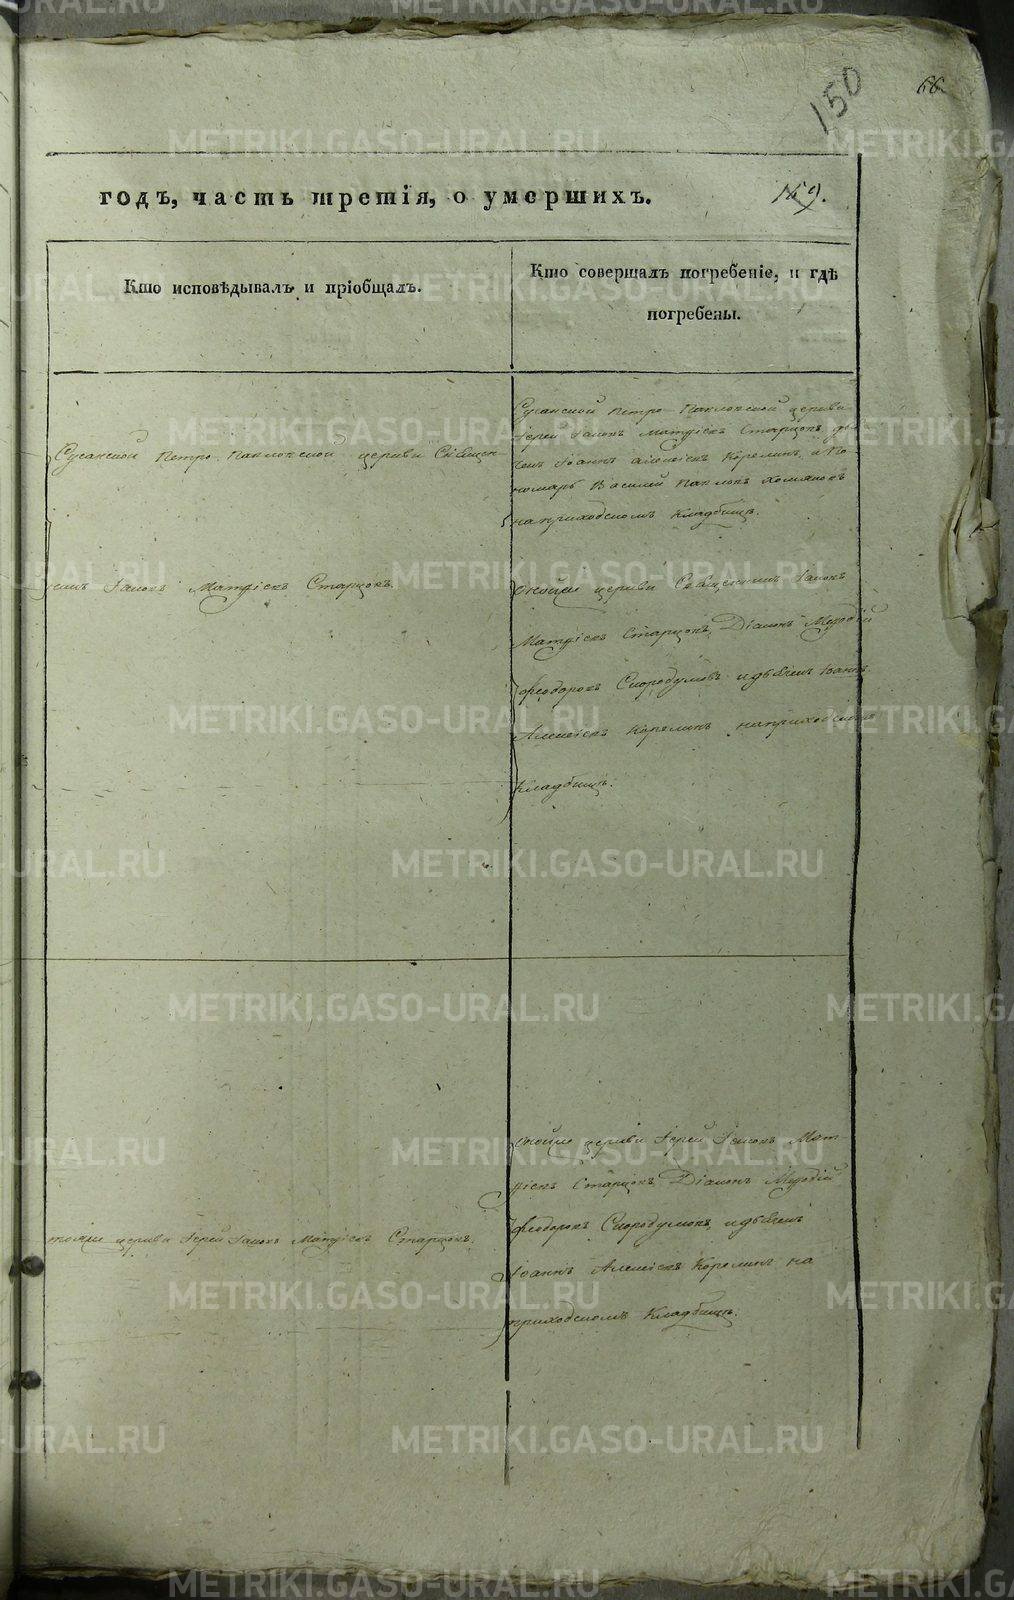 66.
150
годъ, часть третія, о умершихъ.
159.
Кто исповѣдывалъ и пріобщалъ.
Кто совершалъ погребеніе, и гдѣ
погребены.
Сусанской Петро-Павловской церкви Священ-
Іаковъ Матфіевъ Старцовъ.
Сусанской Петро-Павловской церкви
Іерей Іаковъ Матфіевъ Старцовъ, дья-
чекъ Іоаннъ Алексіевъ Корелинъ, и По-
номарь Василей Павловъ Хомяковъ
на приходскомъ Кладбищѣ.
церкви Священникъ Іаковъ
Матфіевъ Старцовъ, Діаконъ Меѳодій
Феодоровъ Скородумовъ и дьячекъ Іоаннъ
Алексіевъ Корелинъ на приходскомъ
Кладбищѣ.
тояже церкви Іерей Іаковъ Матфіевъ Старцовъ.
церкви Іерей Іаковъ Мат-
фіевъ Старцовъ, Діаконъ Меѳодій
Феодоровъ Скородумовъ, и дьячекъ
Іоаннъ Алексіевъ Корелинъ на
приходскомъ Кладбищѣ.
METRIKI.GASO-URAL.RU